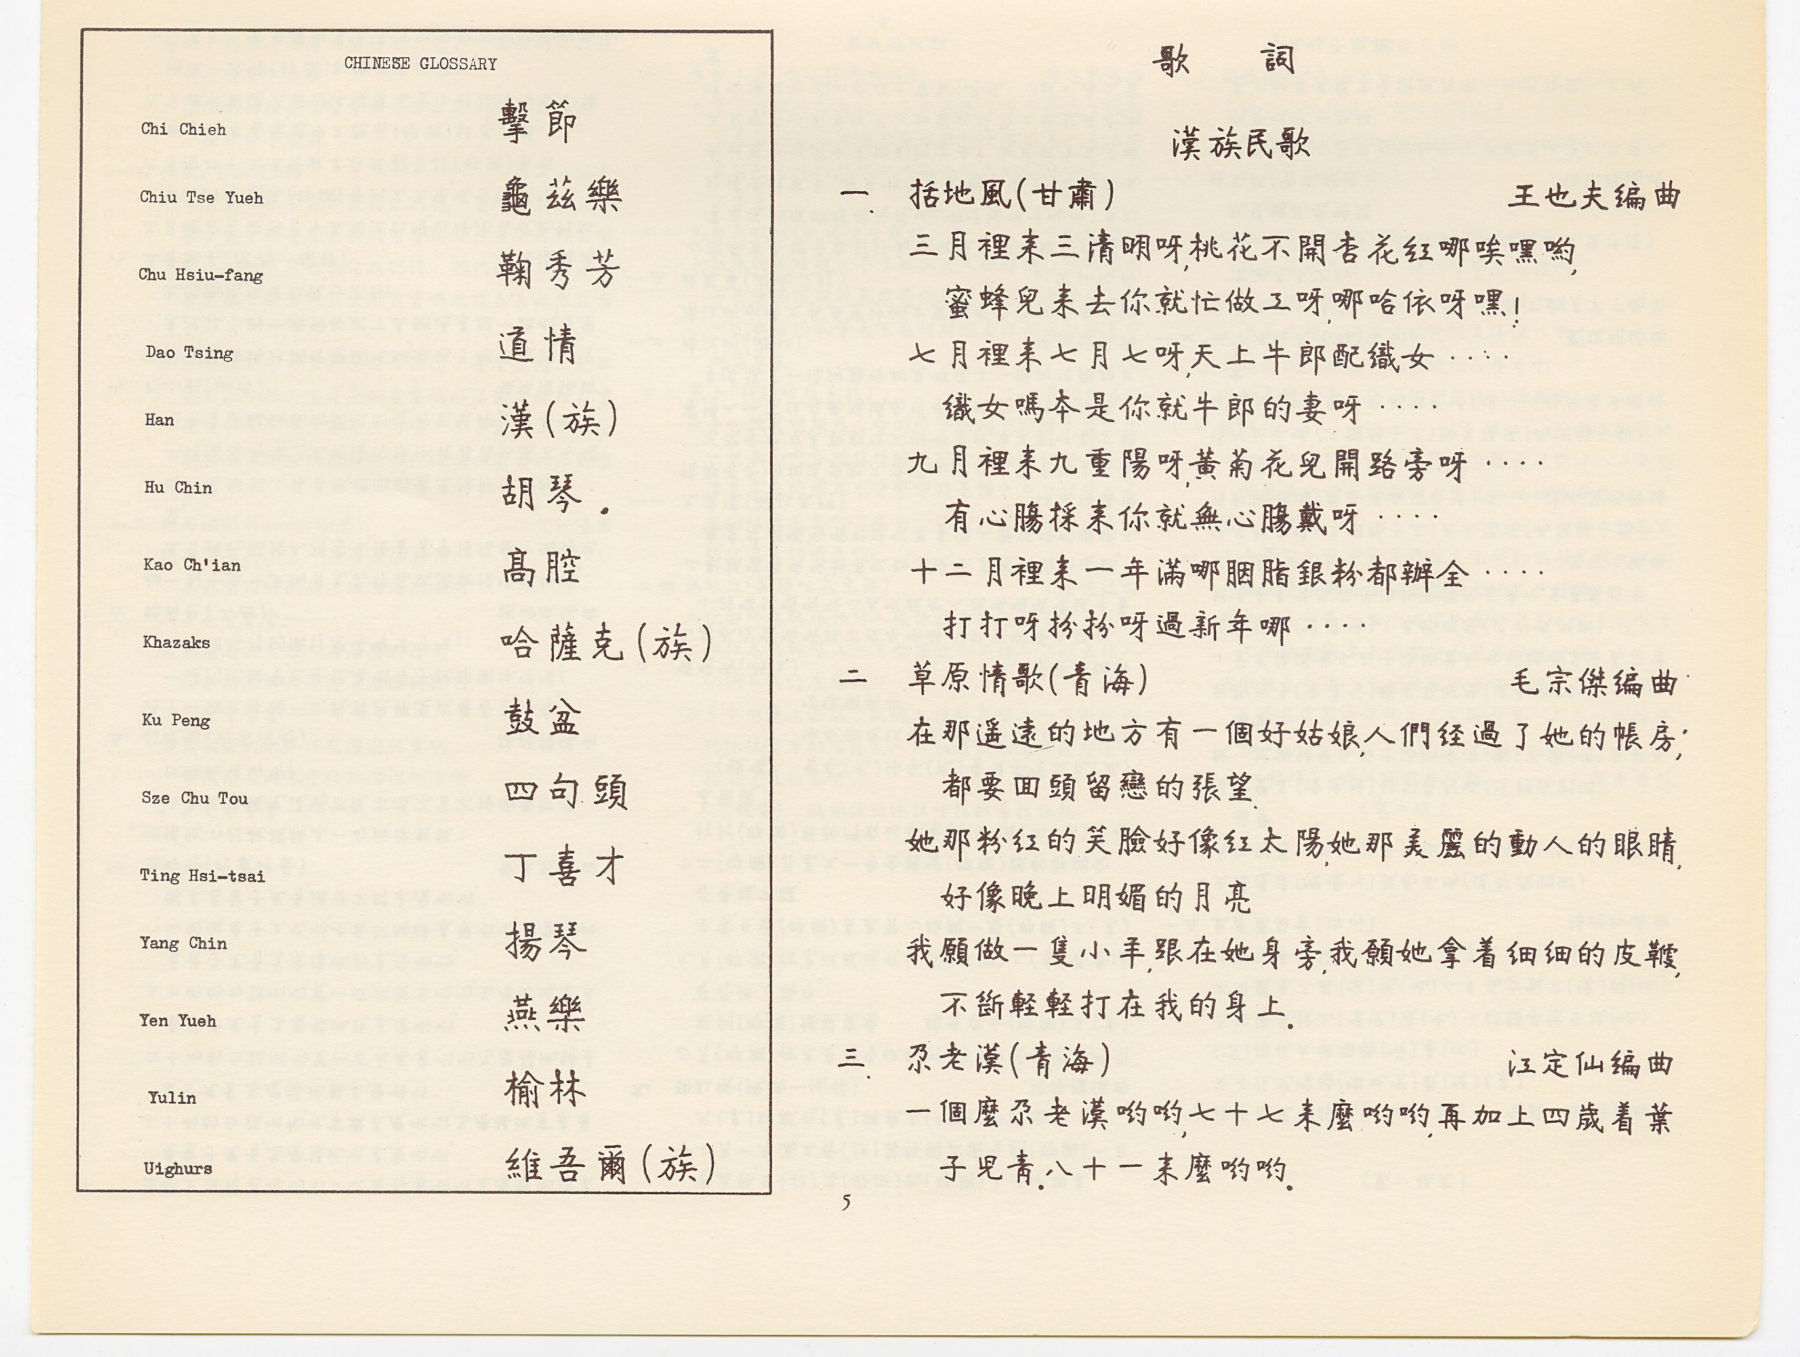 CHINESE GLOSSARY
Chi Chieh 擊節
Chiu Tse Yueh 龜茲樂
Chu Hsiu-fang 鞠秀芳
Dao Tsing 道情
Han 漢(族)
Hu Chin 胡琴.
Kao Ch'ian 高腔
Khazaks 哈薩克(族)
Ku Peng 鼓盆
Sze Chu Tou 四句頭
Ting Hsi-tsai 丁喜才
Yang Chin 揚琴
Yen Yueh 燕樂
Yulin 榆林
Uighurs 維吾爾(族)
歌 詞
漢族民歌
一. 括地風(甘肅) 王也夫编曲
三月裡来三清明呀,桃花不開杏花红哪唉嘿喲,
蜜蜂兒来去你就忙做工呀,哪哈依呀嘿!
七月裡来七月七呀,天上牛郎配織女····
織女嗎本是你就牛郎的妻呀····
九月裡来九重陽呀,黃菊花兒開路旁呀····
有心腸採来你就無心腸戴呀····
十二月裡来一年滿哪胭脂銀粉都辦全····
打打呀扮扮呀過新年哪····
二 草原情歌(青海) 毛宗傑编曲
在那遥遠的地方有一個好姑娘,人們经過了她的帳房;
都要回頭留戀的張望.
她那粉红的笑臉好像红太陽,她那美麗的動人的眼睛,
好像晚上明媚的月亮
我願做一隻小羊,跟在她身旁,我願她拿着细细的皮鞭,
不斷軽軽打在我的身上.
三. 尕老漢(青海) 江定仙编曲
一個麼尕老漢喲喲,七十七来麼喲喲,再加上四歲着葉
子兒青.八十一来麼喲喲.
5